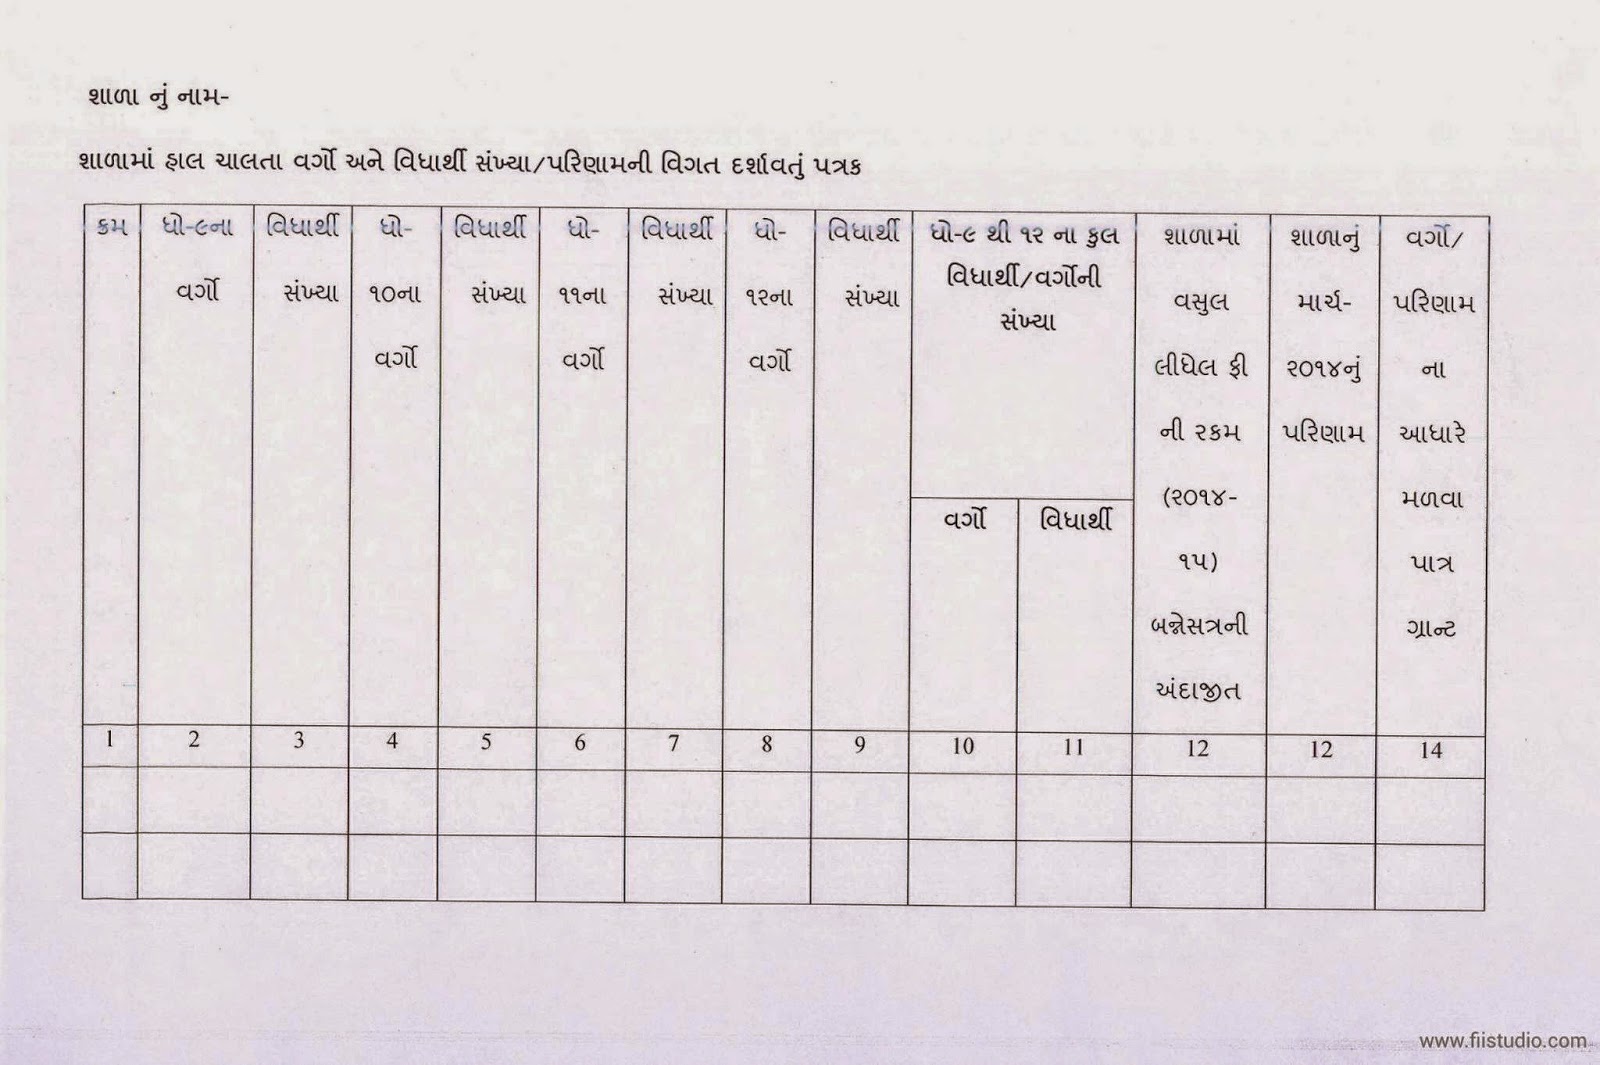 શાળા નું નામ-
શાળામાં હાલ ચાલતા વર્ગો અને વિધાર્થી સંખ્યા/પરિણામની વિગત દર્શાવતું પત્રક
ક્રમ
ધો-૯ના
વર્ગો
વિધાર્થી
સંખ્યા
ધો-
૧૦ના
વર્ગો
વિધાર્થી
સંખ્યા
ધો-
૧૧ના
વર્ગો
વિધાર્થી
સંખ્યા
ધો-
૧૨ના
વર્ગો
વિધાર્થી
સંખ્યા
ધો-૯ થી ૧૨ ના કુલ
વિધાર્થી/વર્ગોની
સંખ્યા
વર્ગો
વિધાર્થી
શાળામાં
વસુલ
લીધેલ ફી
ની રકમ
(૨૦૧૪-
૧૫)
બન્નેસત્રની
અંદાજીત
શાળાનું
માર્ચ-
૨૦૧૪નું
પરિણામ
વર્ગો/
પરિણામ
ના
આધારે
મળવા
પાત્ર
ગ્રાન્ટ
1 2 3 4 5 6 7 8 9 10 11 12 12 14
www.fiistudio.com